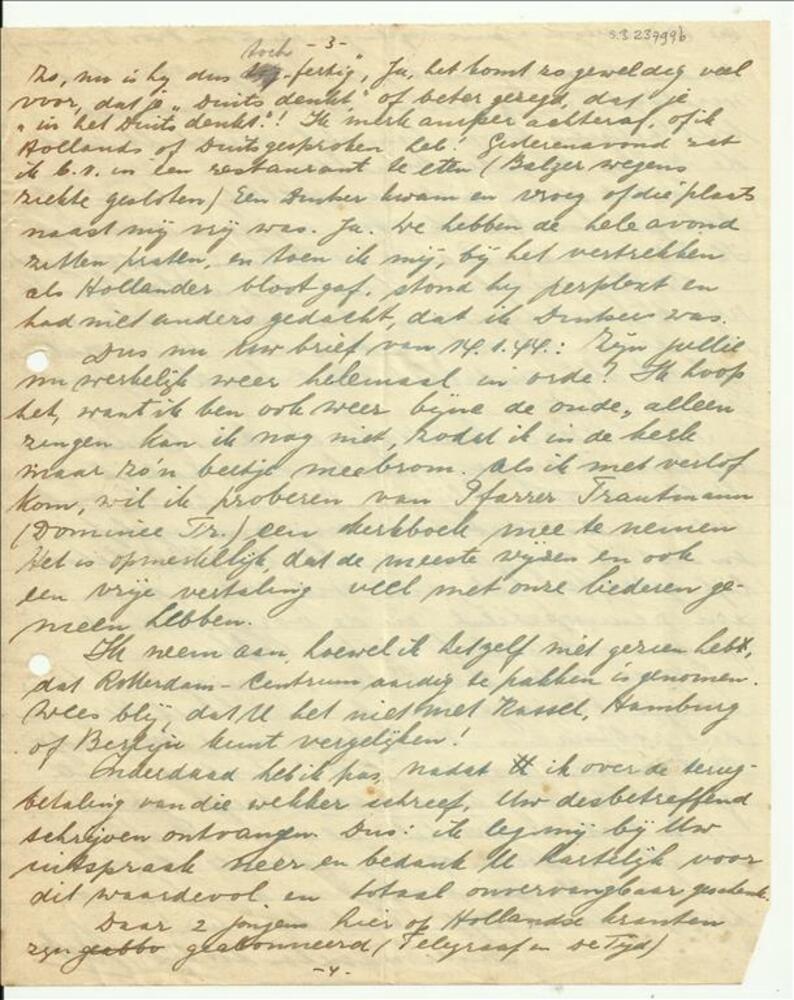 S.3 239996
- 3 -
toch
Zo, nu is hy dus -fertig", Ja, het komt zo geweldig veel
voor, dat je „Duits denkt" of beter gezegd, dat je
"in het Duits denkt"! Ik merk amper achteraf, of ik
Hollands of Duits gesproken heb! Gisterenavond zat
ik b.v. in een restaurant te eten (Balzer wegens
ziekte gesloten) Een Duitser kwam en vroeg of die plaats
naast mij vrij was. Ja. We hebben de hele avond
zitten praten, en toen ik mij, bij het vertrekken
als Hollander bloot gaf, stond hij perplext en
had niet anders gedacht, dat ik Duitser was.
Dus nu Uw brief van 14.1.44.: Zijn jullie
nu werkelijk weer helemaal in orde? Ik hoop
het, want ik ben ook weer bijna de oude, alleen
zingen kan ik nog niet, zodat ik in de kerk
maar zo'n beetje meebrom. Als ik met verlof
kom, wil ik proberen van Pfarrer Trautmann
(Dominee Tr.) een kerkboek mee te nemen
Het is opmerkelijk, dat de meeste wijzen en ook
een vrije vertaling veel met onze liederen ge-
meen hebben.
Ik neem aan, hoewel ik het zelf niet gezien heb,
dat Rotterdam-Centrum aardig te pakken is genomen.
Wees blij, dat U het niet met Kassel, Hamburg
of Berlijn kunt vergelijken!
Inderdaad heb ik pas, nadat ik over de terug-
betaling van die wekker schreef, Uw desbetreffend
schrijven ontvangen. Dus: ik leg mij bij Uw
uitspraak neer en bedank U hartelijk voor
dit waardevol en totaal onvervangbaar geschenk.
Daar 2 jongens hier op Hollandse kranten
zijn geabbo geabonneerd (Telegraaf en De Tijd)
- 4 -